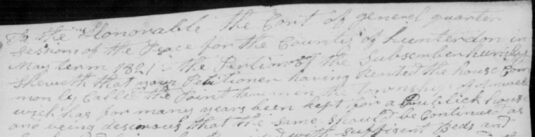 To the Honorable the Cort of general quarter
Sessions of the Peace for the County of hunterdon in
May term 1821 the Pertion of the Subscember humbly
Sheweth that your Petitioner having Rented the house Com
mon by Calld the Tavern in the Township of
wich has for many years been kept for a Publick house
and being desierous that the same should be Continued as
with suffisent Beds and